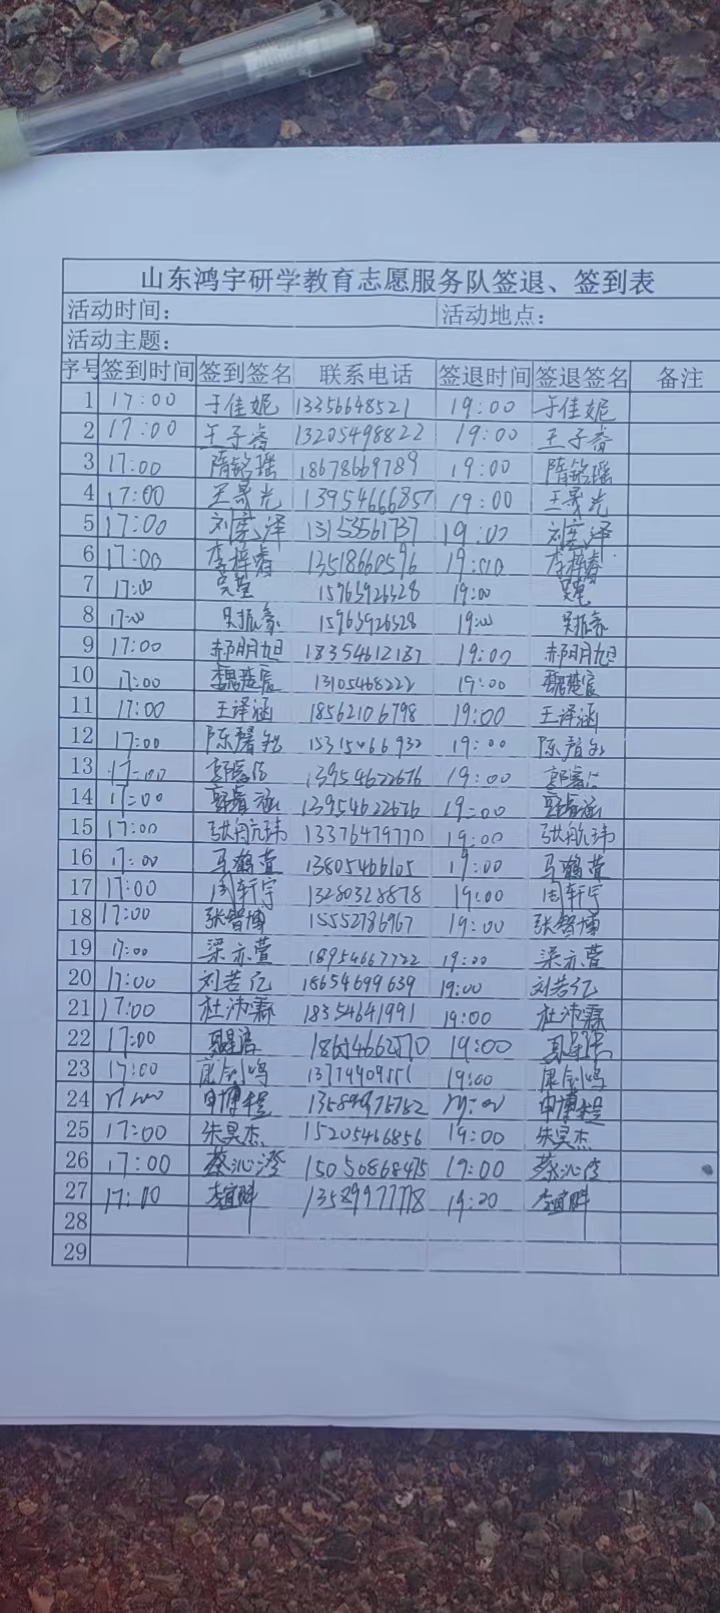 山东鸿宇研学教育志愿服务队签退、签到表
活动时间： 活动地点：
活动主题：
序号 签到时间 签到签名 联系电话 签退时间 签退签名 备注
1 17:00 于佳妮 13356648521 19:00 于佳妮
2 17:00 王子睿 13205498822 19:00 王子睿
3 17:00 隋铭瑶 18678669789 19:00 隋铭瑶
4 17:00 王晟光 13954666857 19:00 王晟光
5 17:00 刘宪泽 13153561737 19:00 刘宪泽
6 17:00 李梓睿 13518660596 19:00 李梓睿
7 17:00 15963926328 19:00
8 17:00 吴振豪 15963926328 19:00 吴振豪
9 17:00 郝明旭 18354612187 19:00 郝明旭
10 17:00 魏楚宸 13105468222 19:00 魏楚宸
11 17:00 王译涵 18562106798 19:00 王译涵
12 17:00 19:00
13 17:00 13954622676 19:00
14 17:00 郭睿涵 13954622676 19:00 郭睿涵
15 17:00 张航玮 13376479770 19:00 张航玮
16 17:00 马鹤萱 13805466105 19:00 马鹤萱
17 17:00 周轩宇 13280328878 19:00 周轩宇
18 17:00 张智博 15552786967 19:00 张智博
19 17:00 梁亦萱 18954667722 19:00 梁亦萱
20 17:00 刘若亿 18654699639 19:00 刘若亿
21 17:00 杜沛霖 18354641991 19:00 杜沛霖
22 17:00 19:00
23 17:00 19:00
24 申博程 申博程
25 17:00 朱昊杰 15205466856 19:00 朱昊杰
26 17:00 蔡沁澄 15050868475 19:00 蔡沁澄
27 17:00 19:20
28
29